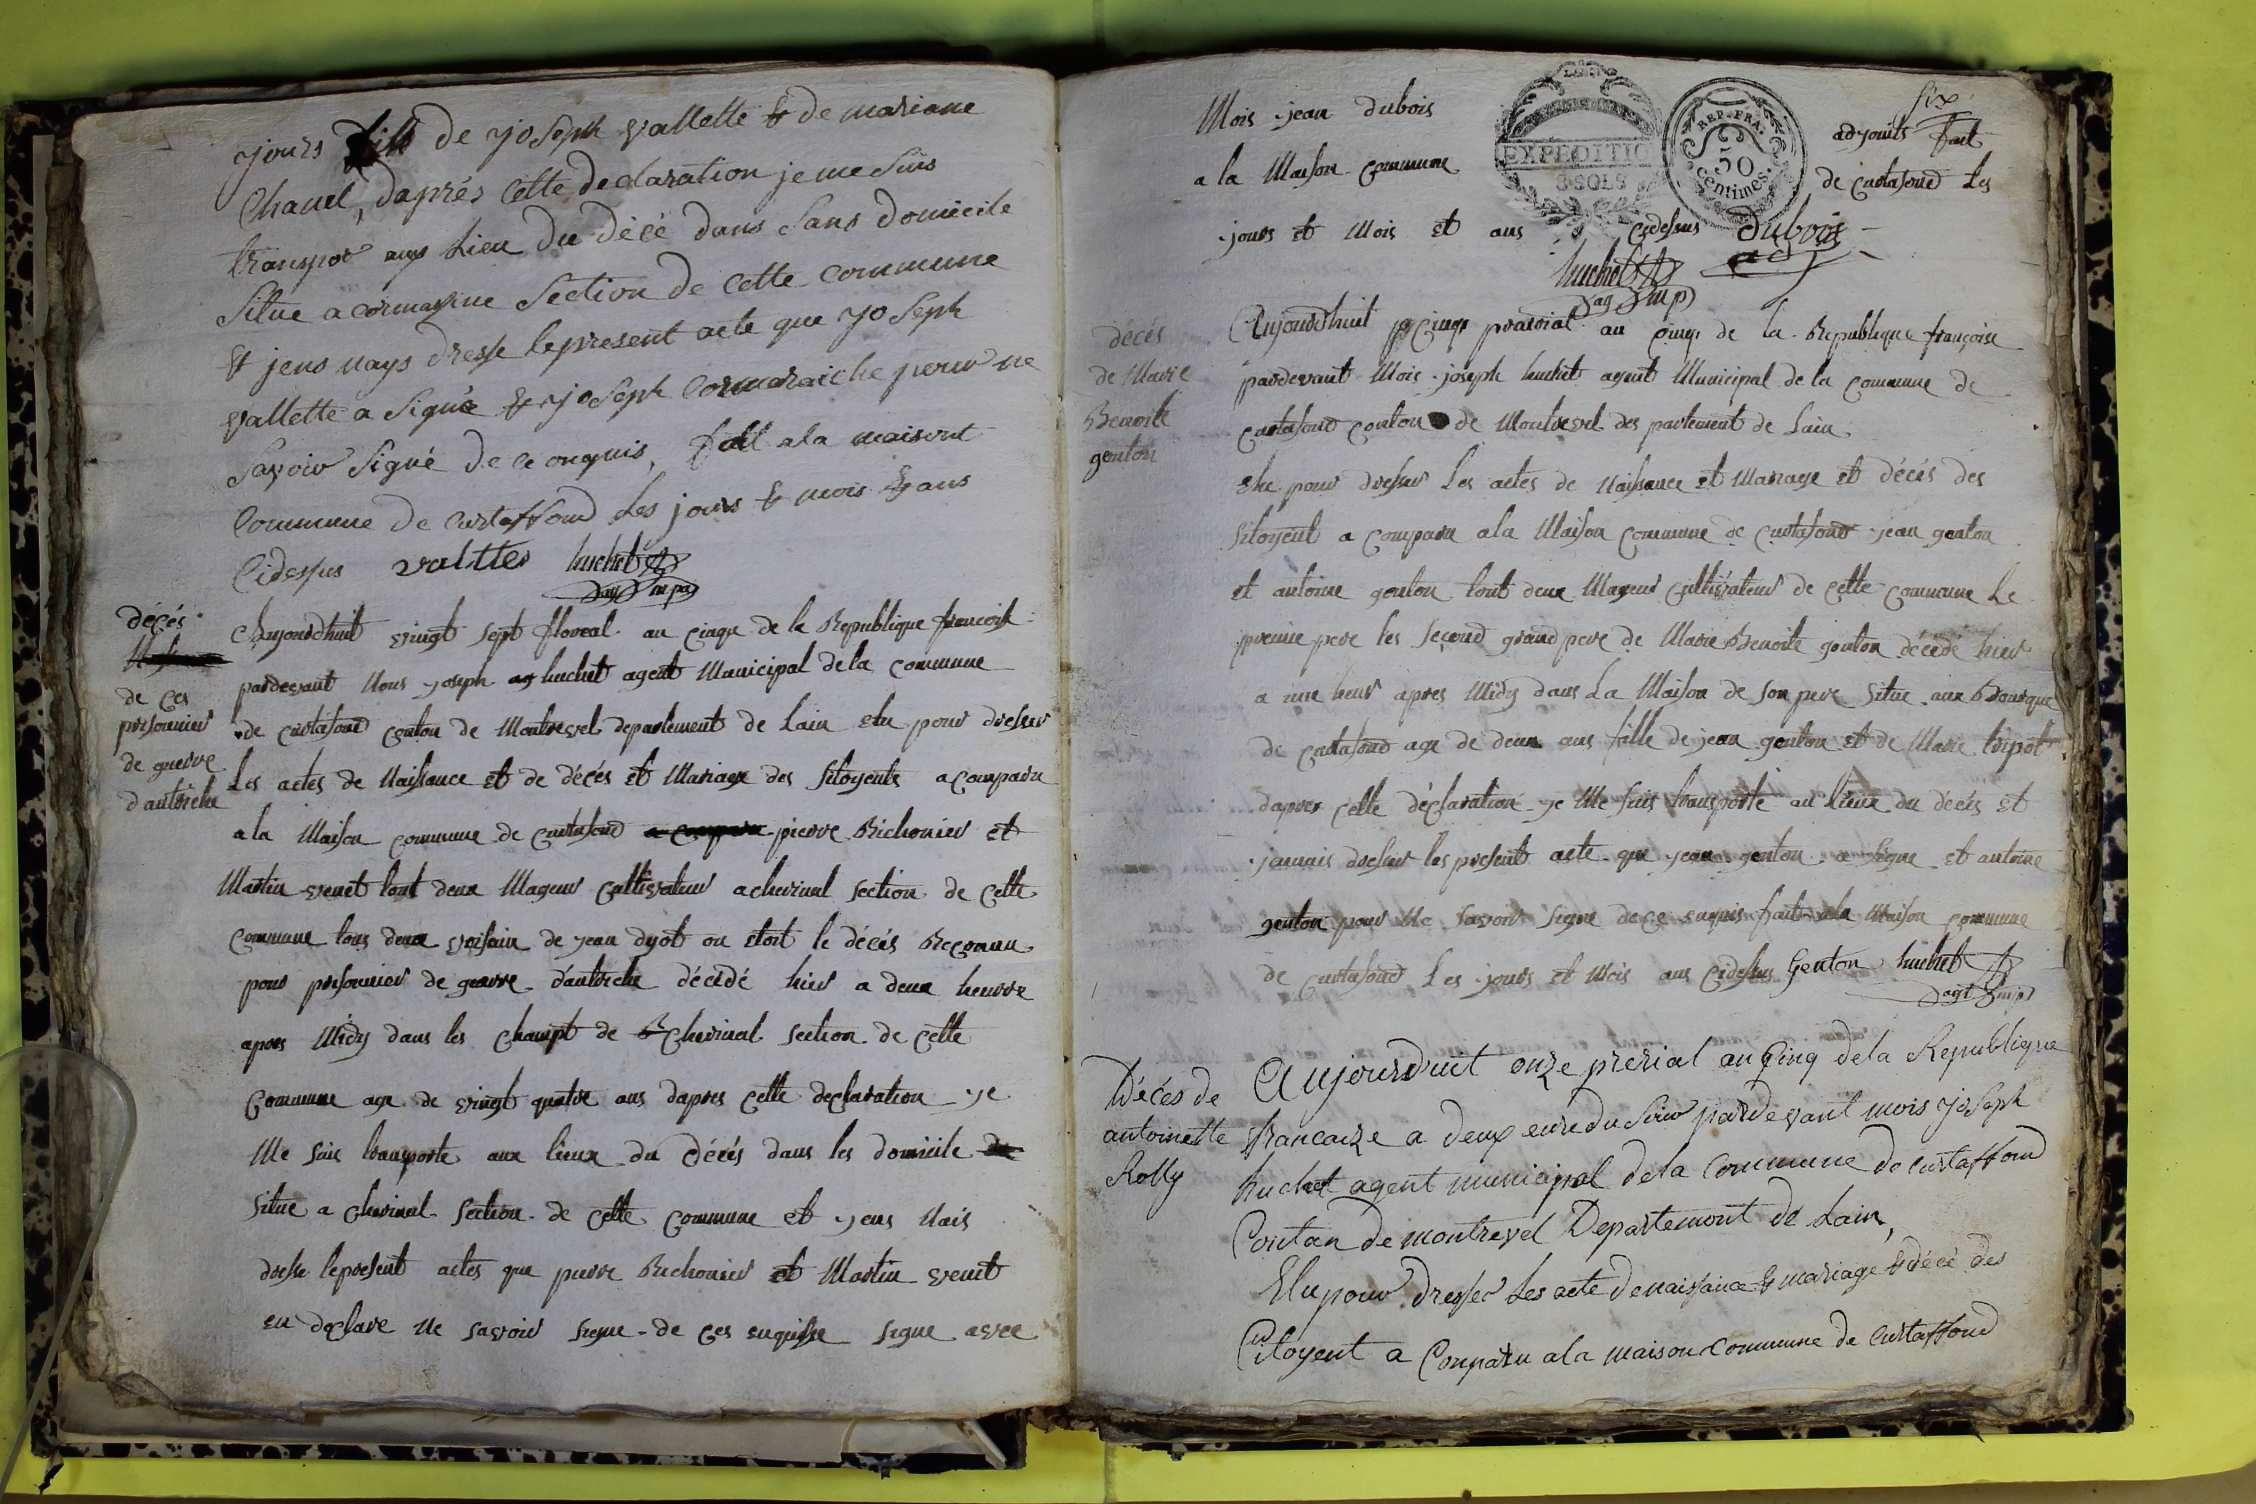 jours fille de joseph vallette & de mariane
Chanel, daprés Cette declaration je me suis
transpor aux Lieu du décé dans sans domicile
situe a cormasine Section de Cette commune
& jens nays dresse lepresent acte que joseph
vallette a signé & joseph Cormaraiche pour ne
savoir signé de ce onquis, fall ala maisont
Commune de Curtaffond Les jours & mois & ans
Cidessus valettes huchet
agt mpal
décés
de ces
prisonnier
de guerre
dautriche
Aujourdhuit vingt sept floreal an cinqe de la Republique francoise
pardevant Nous joseph huchet agent Municipal de la Commune
de curtafond conton de Montrevel departement de Lain elu pour dresser
Les actes de Naissance et de décés et Mariage des sitoyents a comparu
a la Maison commune de curtafond pierre Bichonier et
Martin venet tout deux Mageur Cultivateur a cherinal section de cette
commune tous deux voisain de jean dyot ou etoit le décés Reconnu
pour prisonnier de guerre dautriche décédé hier a deux heurre
apres Midy dans les champt de Cherinal section de cette
Commune age de vingt quatre ans dapres cette declaration je
Me suis transporte aux lieux du décés dans les domicile
situe a cherinal section de cette commune et jens Nais
dresse lepresent actes que pierre Bichonier et Martin venet
en declare Ne savoir signe de ces enquisse signe avec
six
Mois jean dubois adjouits fait
a la Maison commune de curtafond Les
EXPEDITIO
3 SOLS
REP. FRA.
50
centimes.
jours et Mois et ans cidessus Dubois
adj
huchet
ag mp
décés
de Marie
Benoite
genton
Aujourdhuit cinqe prairial an cinqe de la Republique françoise
pardevant Mois joseph huchet agent Municipal de la commune de
curtafond conton de Montrevel des partement de Lain
elu pour dresser Les actes de Naissance et Mariage et décés des
sitoyent a comparu ala Maison commune de curtafond jean genton
et antoine genton tout deux Mageur cultivateur de cette commune Le
premie pere les second grand pere de Marie Benoite genton décédé hier
a une heur apres Midy dans La Maison de son pere situe aux
de curtafond age de deux ans fille de jean genton et de Marie tripot
dapres cette déclaration je Me suis transporte au lieux du décés et
jannais dresser les present acte que jean genton a signe et antoine
genton pour Ne savoir signe de ce enquis fait ala Maison commune
de curtafond Les jours et Mois ans cidessus Genton huchet
agt mp
Décés de
antoinette
Rolly
Aujourduit onze prerial an Cinq dela Republique
francaize a deux eure du soir pardevant mois joseph
huchet agent municipal dela Commune de curtaffond
Contan de montrevel Departemont de Lain,
Elu pour dresser Les acte de naissance & mariage & décé des
Citoyent a Comparu ala maison Commune de Curtaffond